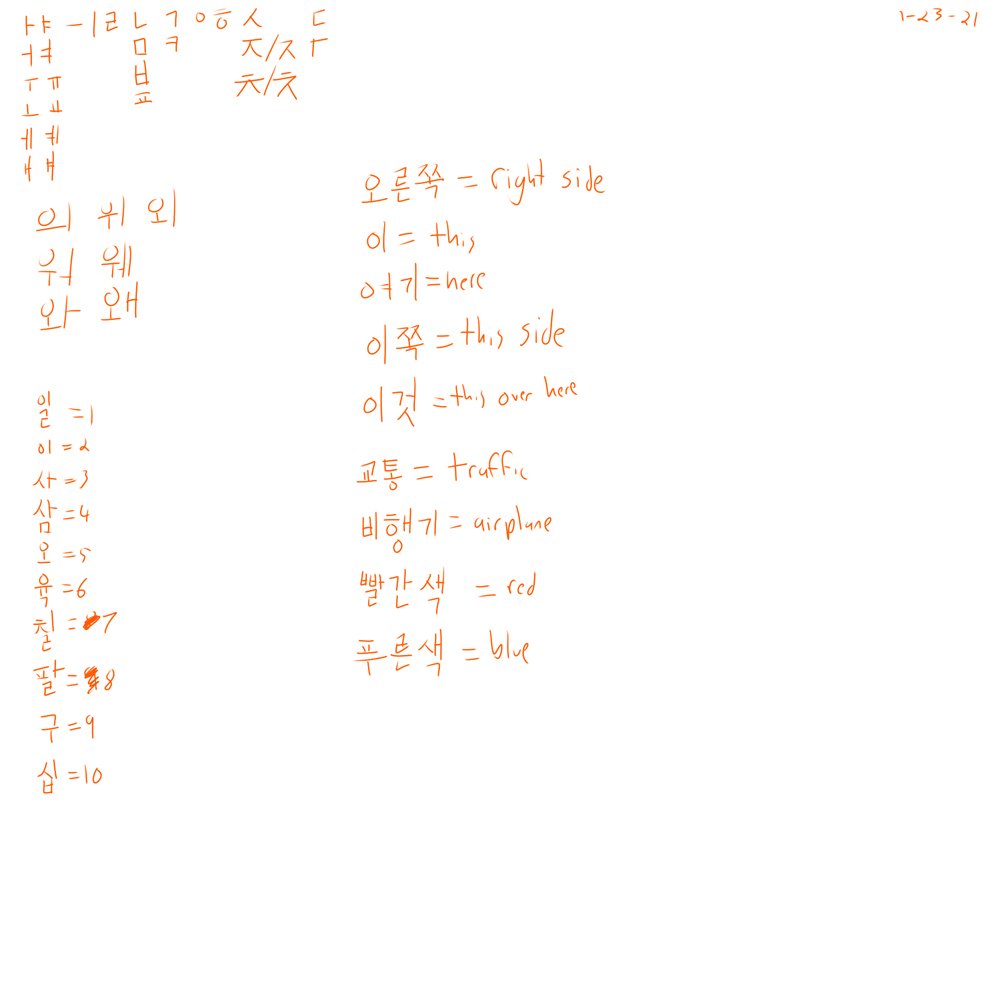 ㅏㅑ ㅡㅣㄹ ㄴ ㄱ ㅇㅎ ㅅ ㄷ 1-23-21
ㅓㅕ ㅁ ㅋ ㅈ/ㅈ
ㅜㅠ ㅂ ㅊ/ㅊ
ㅗㅛ ㅍ
ㅔㅖ
ㅐㅒ
의 위 외
워 웨
와 왜
오른쪽 = right side
이 = this
여기 = here
이쪽 = this side
이것 = this over here
교통 = traffic
비행기 = airplane
빨간색 = red
푸른색 = blue
일 = 1
이 = 2
사 = 3
삼 = 4
오 = 5
육 = 6
칠 = 7
팔 = 8
구 = 9
십 = 10